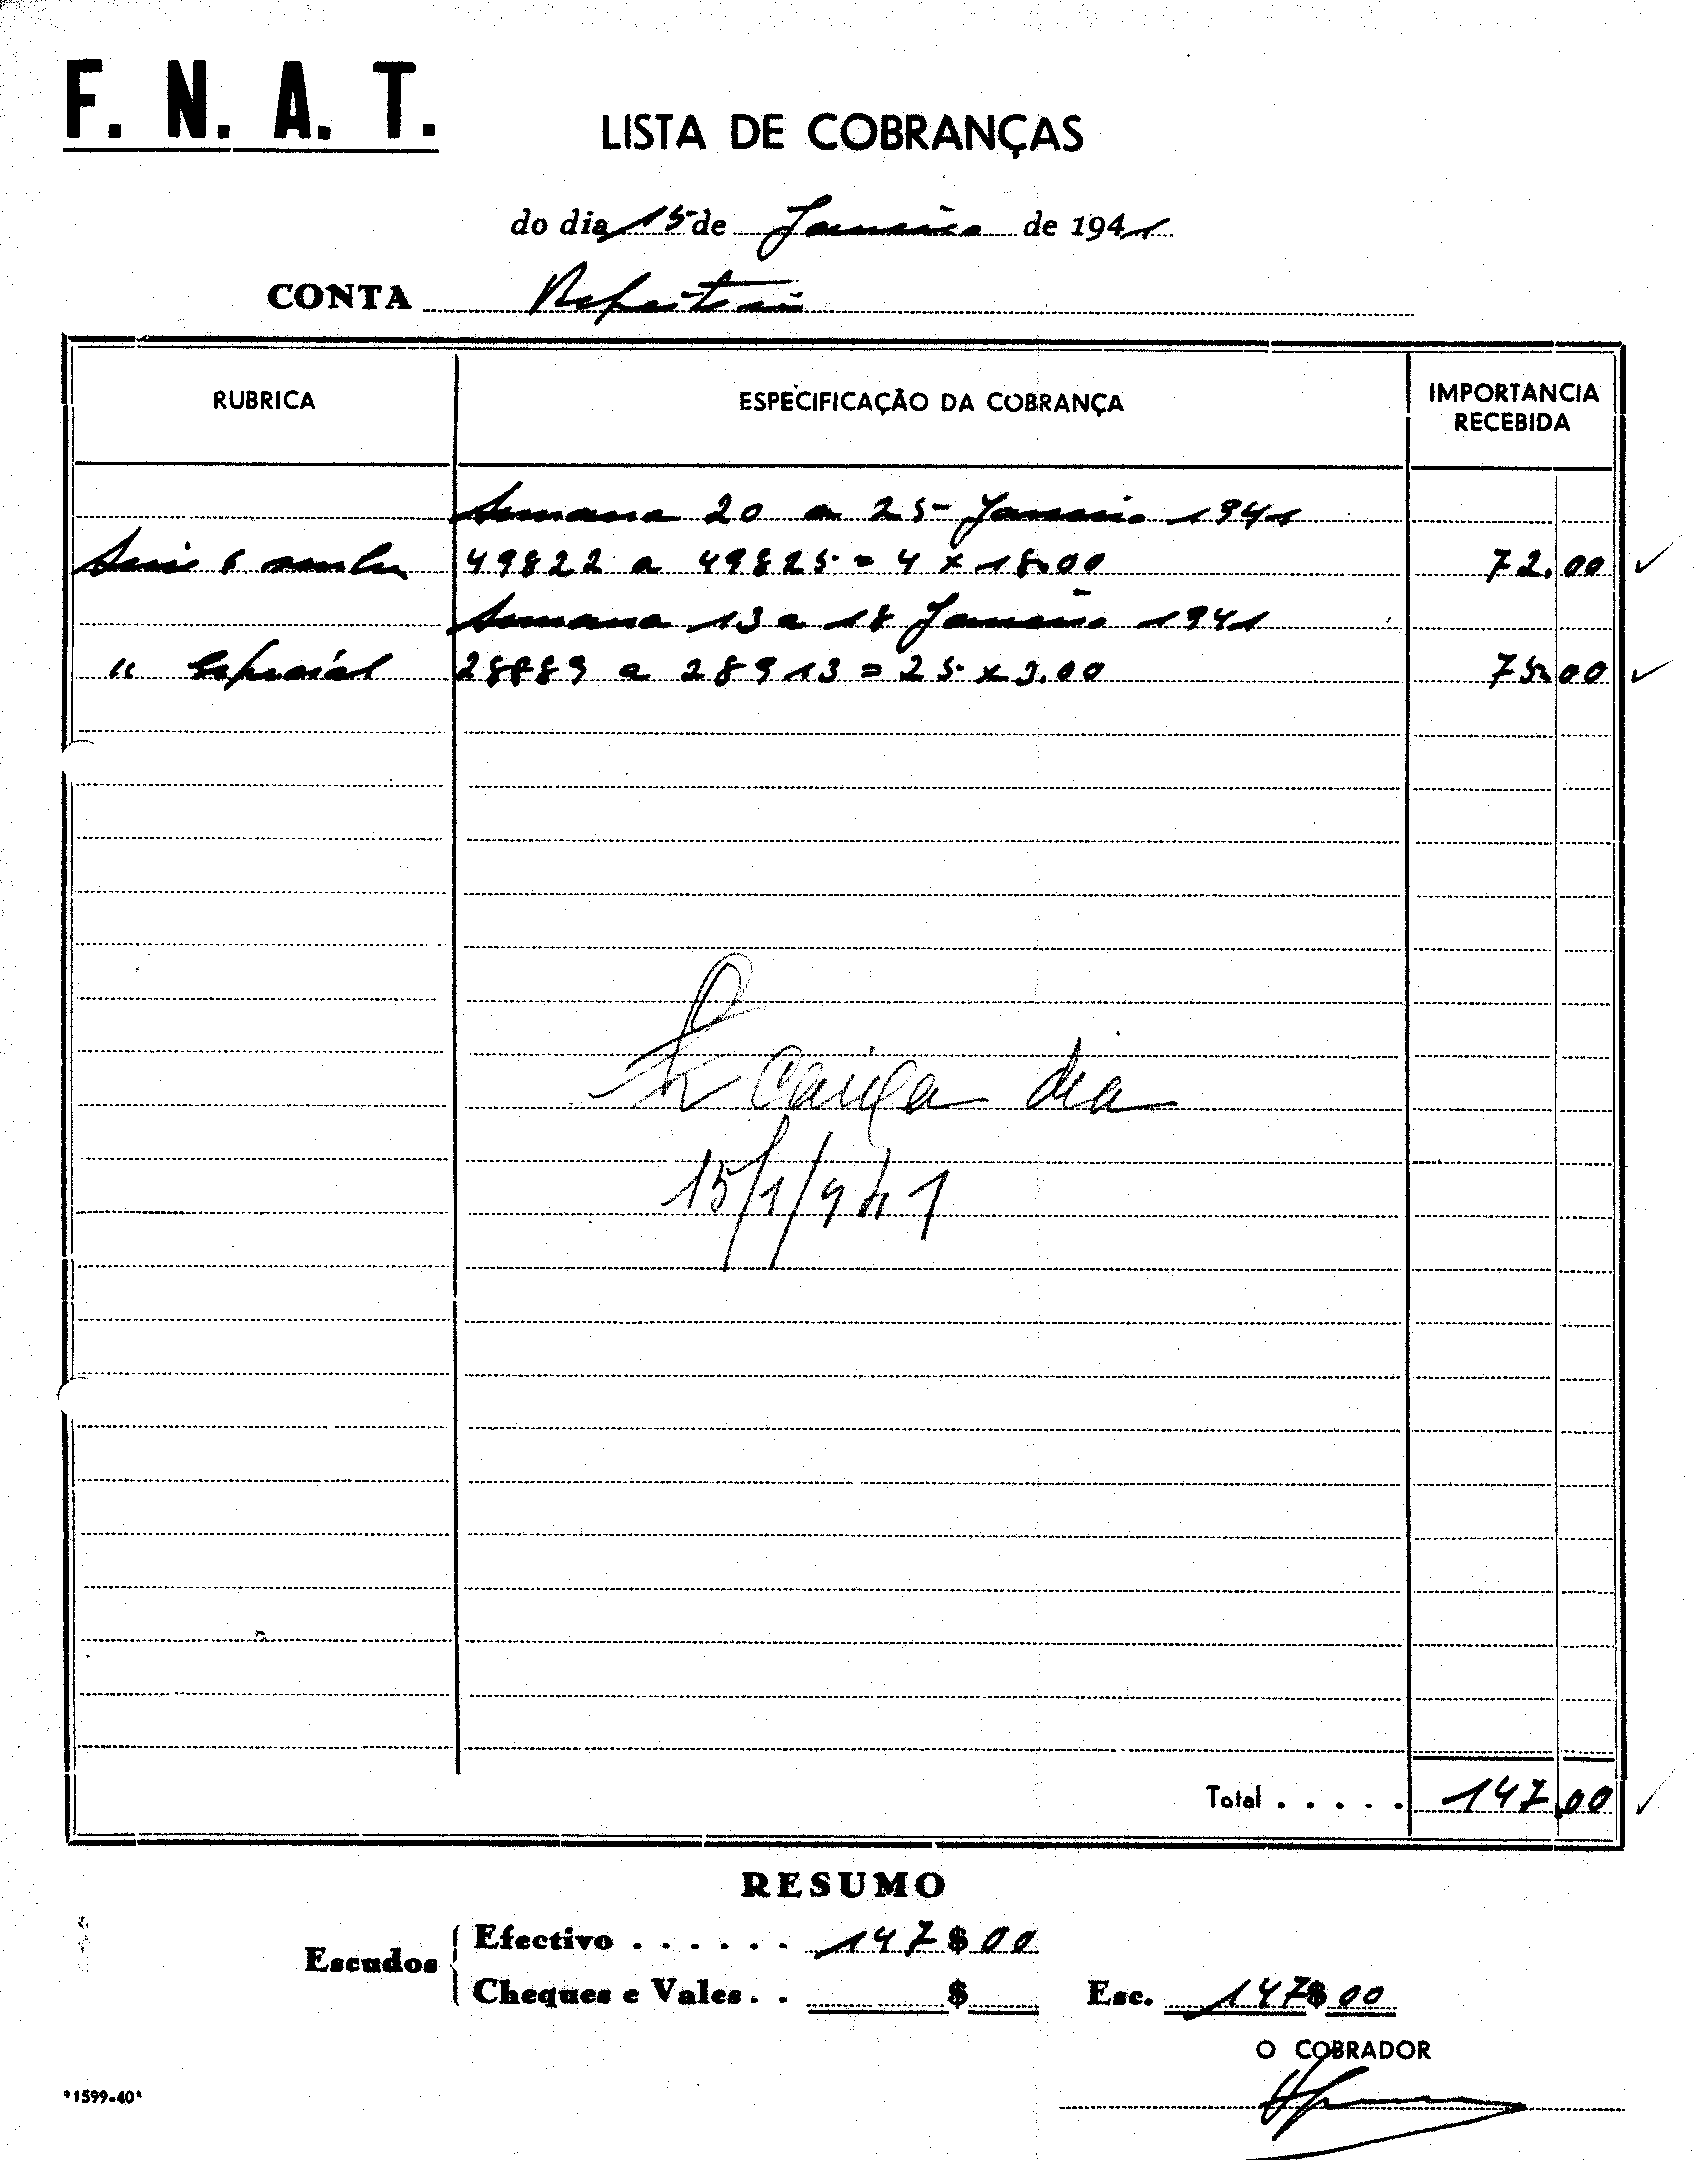 F. N. A. T.
LISTA DE COBRANÇAS
do dia 15 de Janeiro de 1941
CONTA Refeitorio
RUBRICA
ESPECIFICAÇÃO DA COBRANÇA
IMPORTANCIA RECEBIDA
Semana 20 a 25 Janeiro 1941
Serie 6 senhas 49822 a 49825 = 4 x 18.00 72.00
Semana 13 a 18 Janeiro 1941
" Especial 28889 a 28913 = 25 x 3.00 75.00
caixa dia
15/1/941
Total . . . . . 147.00
RESUMO
Escudos
Efectivo . . . . . . 147$00
Cheques e Vales . . $
Esc. 147$00
O COBRADOR
*1599-40*